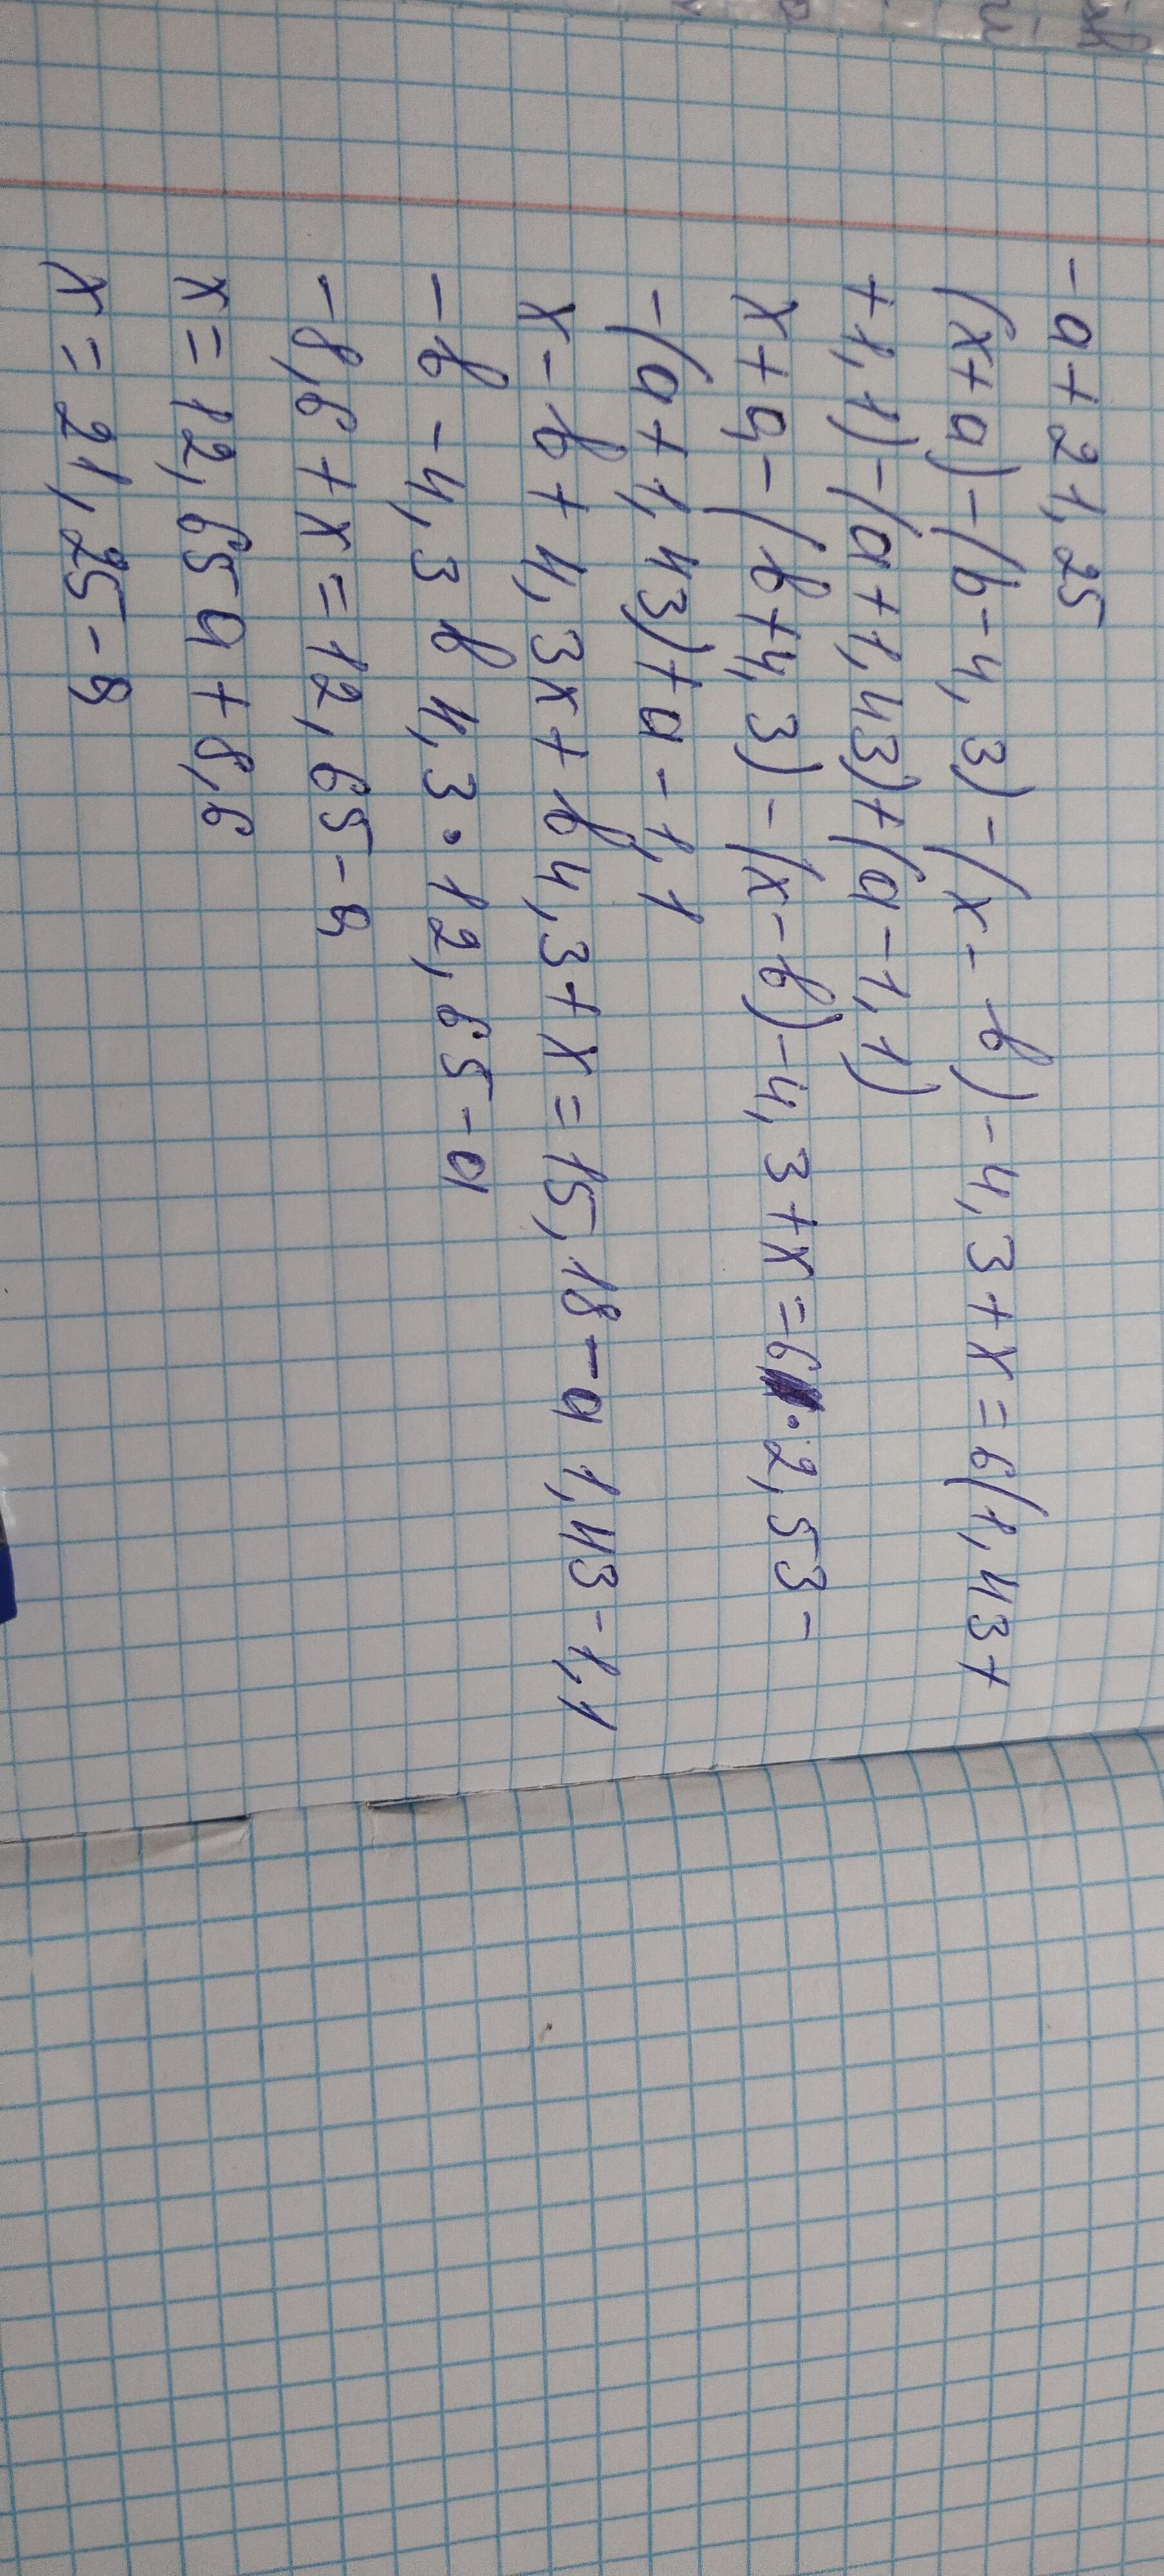 -a+21,25
(x+a)-(b-4,3)-(x-b)-4,3+x=6(1,43+
+1,1)-(a+1,43)+(a-1,1)
x+a-(b+4,3)-(x-b)-4,3+x=6·2,53-
-(a+1,43)+a-1,1
x-b+4,3x+b4,3+x=15,18-a1,43-1,1
-b-4,3 b 4,3·12,65-a
-8,6+x=12,65-a
x=12,65a+8,6
x=21,25-a